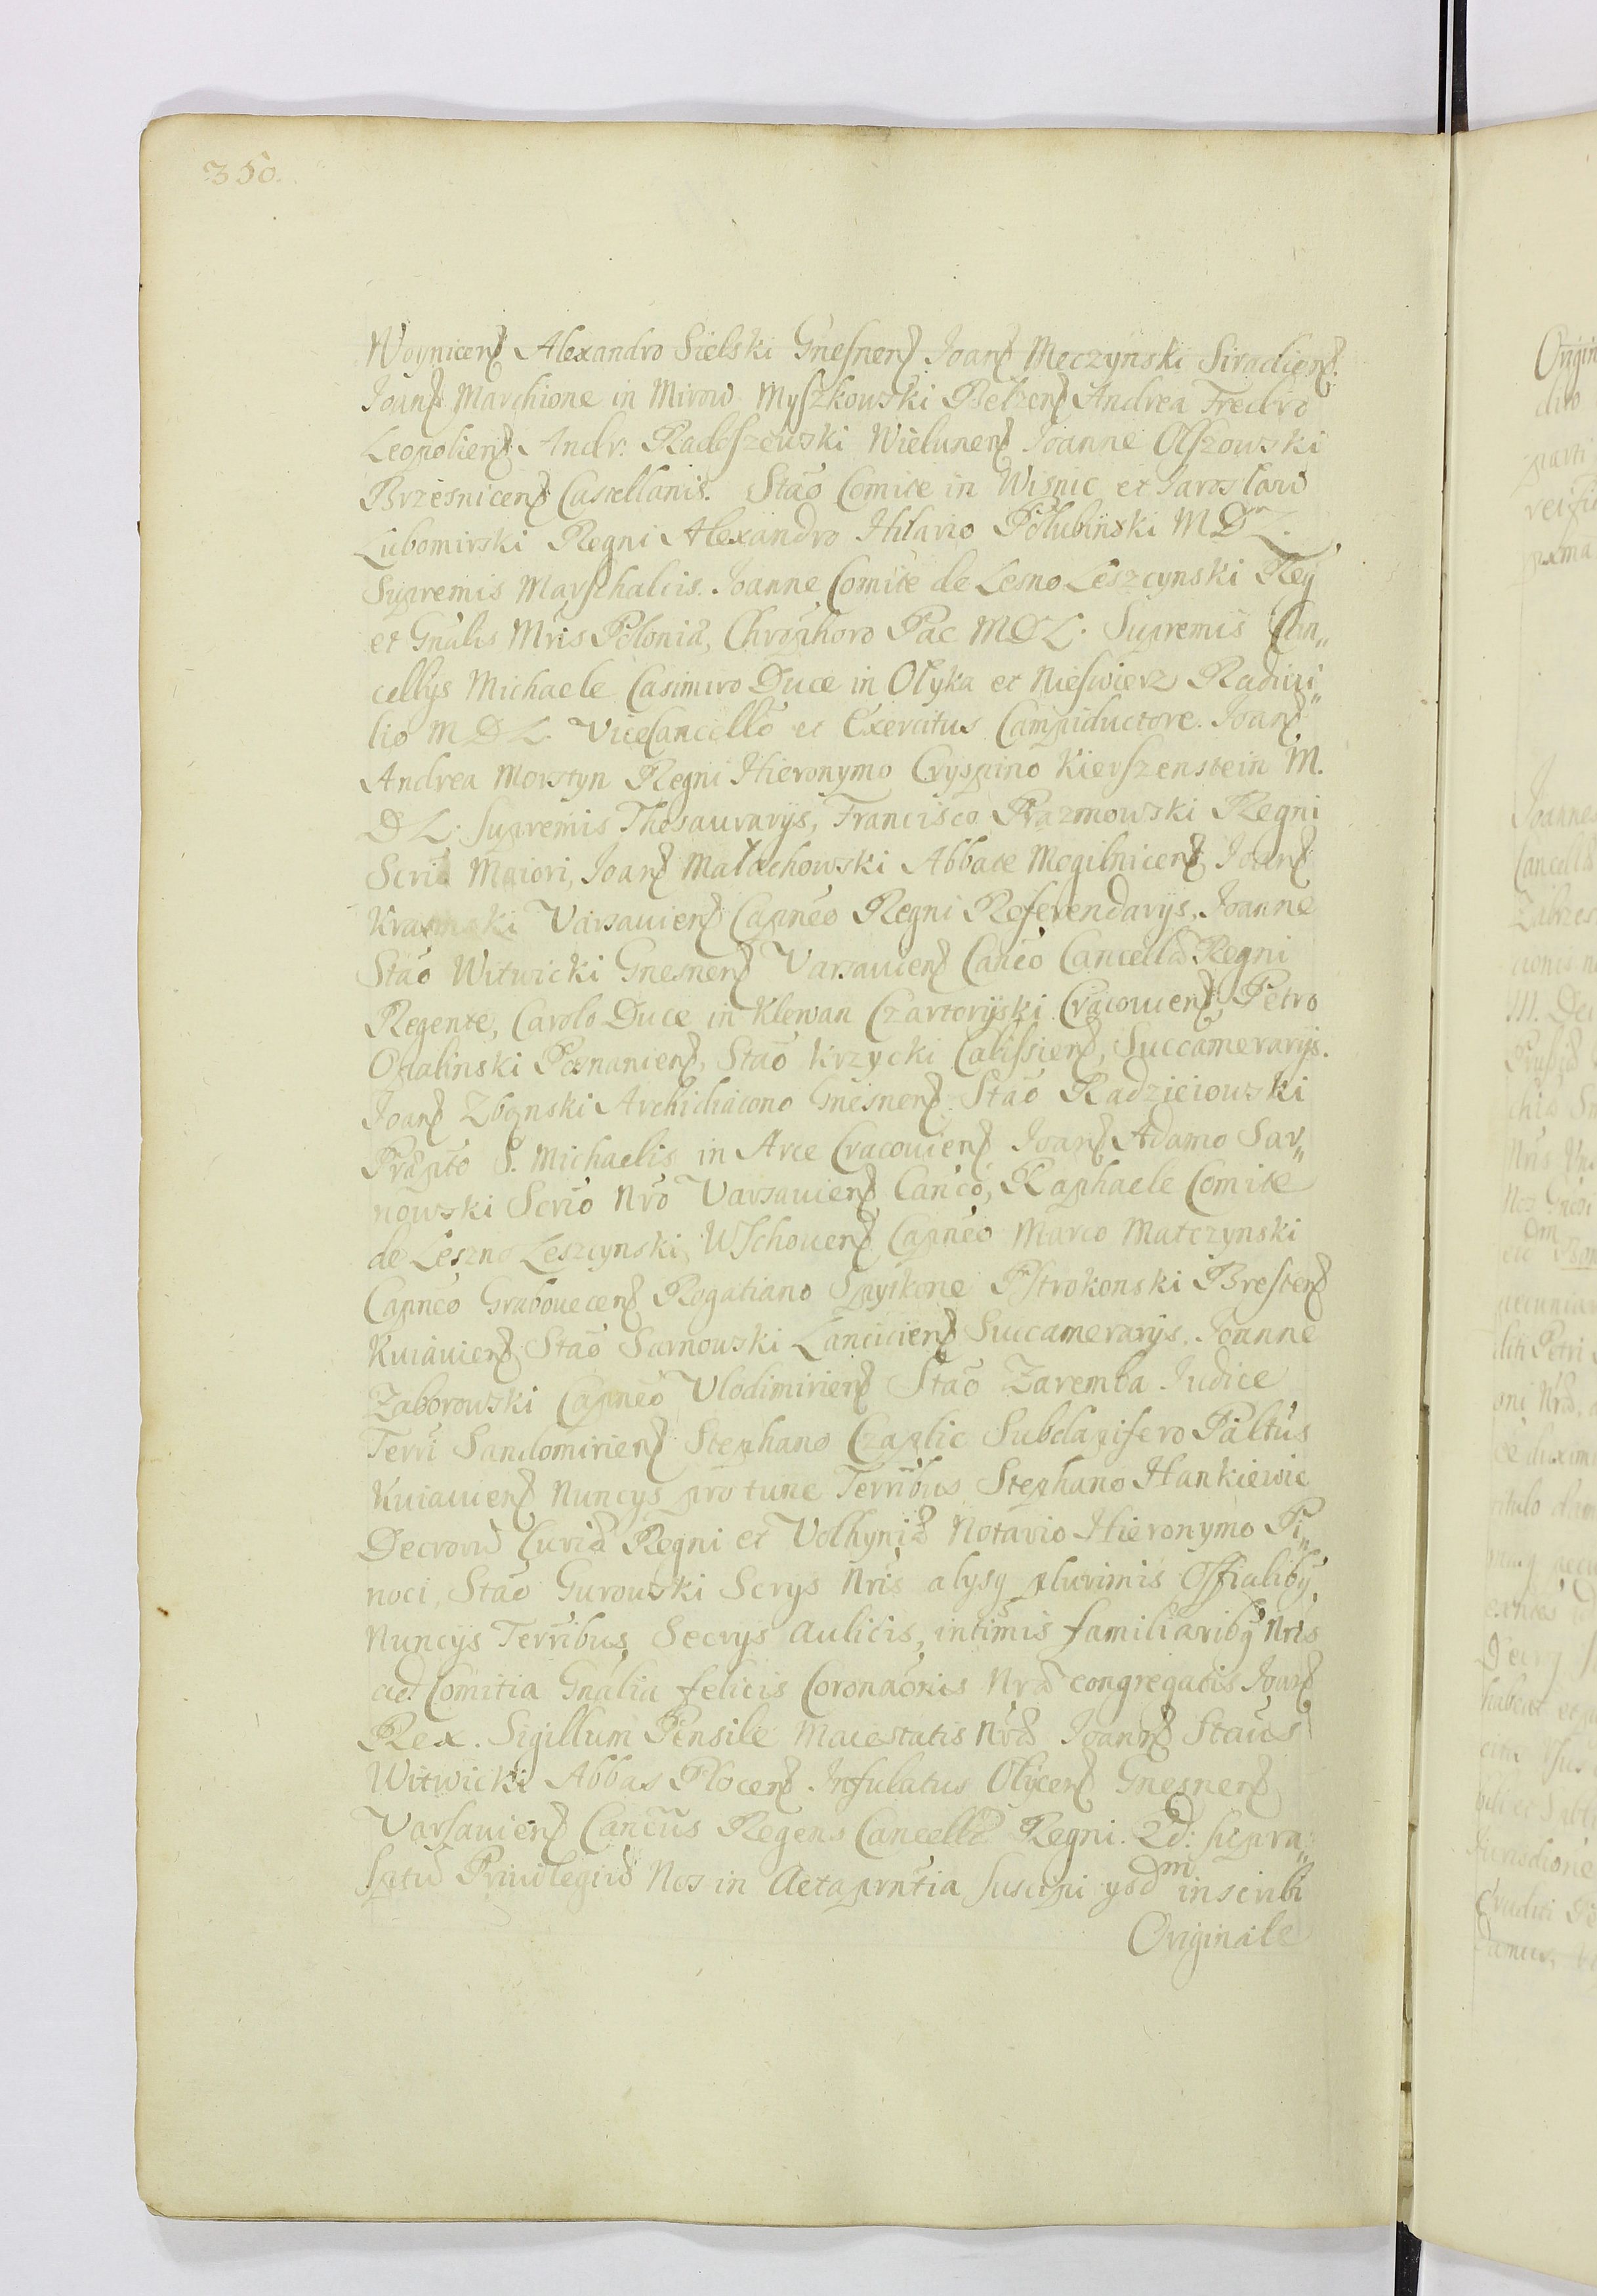 350.
Woynicen Alexandro Sielski Gnesnen Joan Meczynski Siradien.
Joan Marchione in Mirow Myszkowski Belzen Andrea Fredro
Leopolien Andr: Radoszewski Wielunen Joanne Olszowski
Brzesnicen Castellanis. Stao Comite in Wisnic et Jaroslaw
Lubomirski Regni Alexandro Hilario Polubinski M D L.
Supremis Marschalcis. Joanne Comite de Lesno Leszcynski Reg
et Gnalis Mris Polonia, Chrophoro Pac MDL. Supremis Can„
cellys Michaele Casimiro Duce in Olyka et Nieswierz Radzivi„
lio M D L. ViceCancello et Exercitus Campiductore. Joan
Andrea Morstyn Regni Hieronymo Cryspino Kierszenstein M.
D L: Supremis Thesaurarys, Francisco Prazmowski Regni
Scrio Maiori, Joan Malachowski Abbate Mogilnicen, Joan
Krasinski Varsavien Capneo Regni Referendarys, Joanne
Stao Witwicki Gnesnen Varsavien Canco Cancella Regni
Regente, Carolo Duce in Klewan Czartoryski Cracovien, Petro
Opalinski Posnanien, Stao Krzycki Calissien, Succamerarys.
Joan Zbynski Archidiacono Gnesnen Stao Radzieiowski
Prapto S. Michaelis in Arce Cracovien Joan Adamo Sar„
nowski Scrio Nro Varsavien Canco, Raphaele Comite
de Leszno Leszcynski, Wschoven Capneo Marco Matczynski
Capneo Grabovecen Rogatiano Spytkone Pstrokonski Bresten
Kuiavien Stao Sarnowski Lancicien Succamerarys. Joanne
Zaborowski Capneo Vlodimirien Stao Zaremba Judice
Terri Sandomirien Stephano Czaplic Subdapifero Paltus
Kuiavien Nuncys pro tunc Terribus Stephano Hankiewic
Decrorum Curia Regni et Volhynia Notario Hieronymo Pi„
noci, Stao Gurowski Scrys Nris alysq plurimis Offialibq
Nuncys Terribus Secrys Aulicis, intimis familiaribq Nris
ad Comitia Gnalia felicis Coronaonis Nra congregatis Joan
Rex. Sigillum Pensile Maiestatis Nra Joann Staus
Witwicki Abbas Plocen Infulatus Olycen Gnesnen
Varsavien Cancus Regens Cancella Regni. Qd: supra„
sptu Privilegiu Nos in Acta prntia suscipi yod m inscribi
Originale